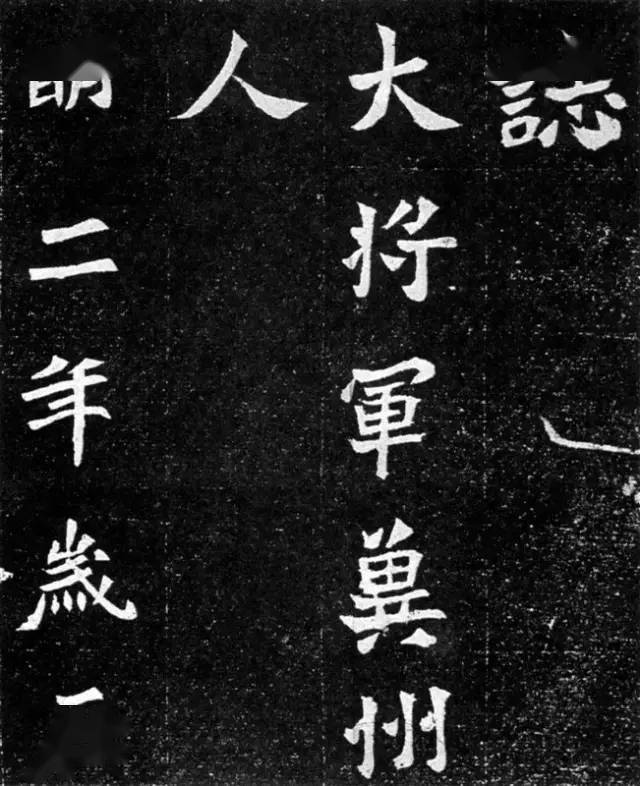 誌
大将軍冀州
人
二年歲